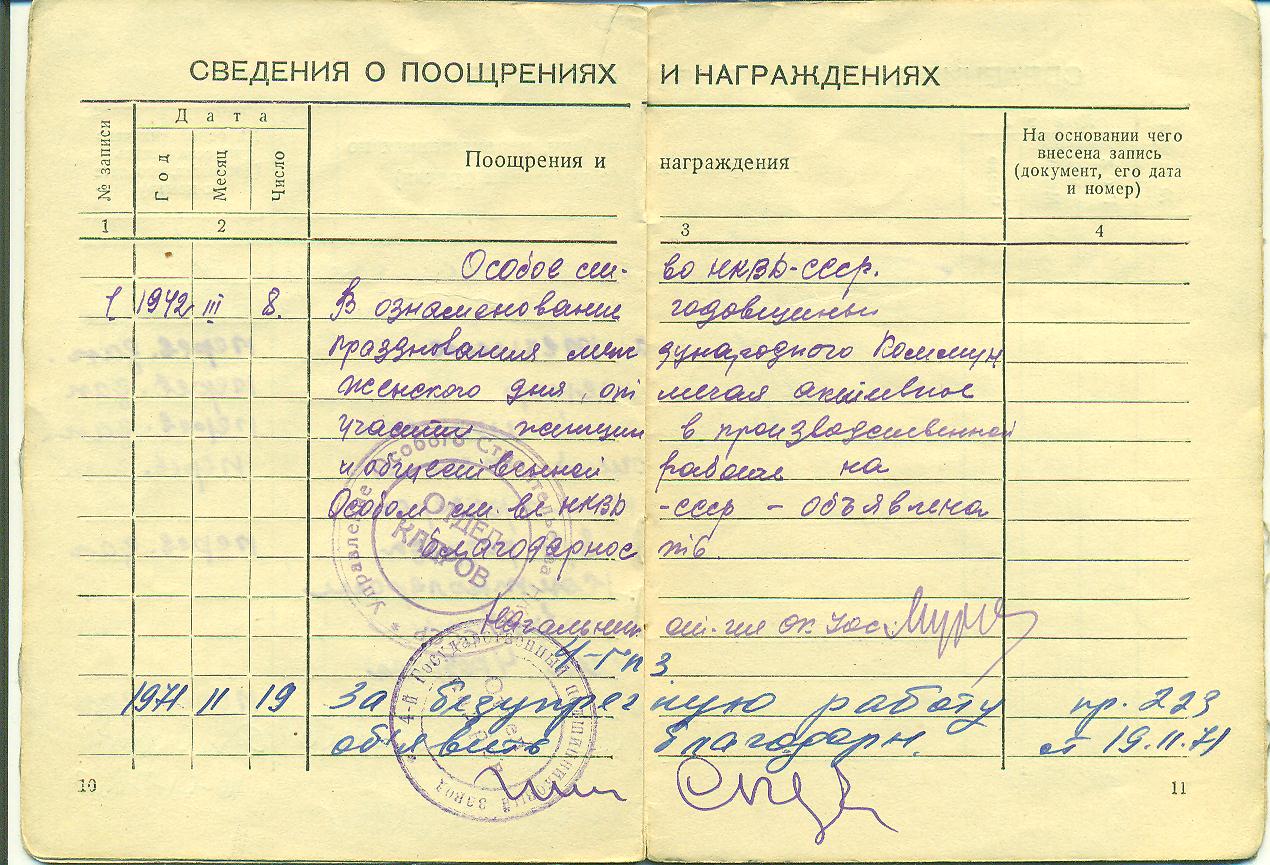 СВЕДЕНИЯ О ПООЩРЕНИЯХ И НАГРАЖДЕНИЯХ
№ записи
Дата
Год
Месяц
Число
Поощрения и награждения
На основании чего
внесена запись
(документ, его дата
и номер)
1 2 3 4
Особое ст-во НКВД-СССР.
1 1942 III 8. В ознаменование годовщины
празднования международного Коммун
женского дня, отмечая активное
участие женщин в производственной
и общественной работе на
Особом ст. ве НКВД-СССР - объявлена
благодарность.
Управление Особого Строительства
ОТДЕЛ
КАДРОВ
Начальник
4-ГПЗ
1971 11 19 За безупречную работу пр. 223
объявить благодарн. от 19.11.71
4-й Государственный подшипниковый завод
10
11